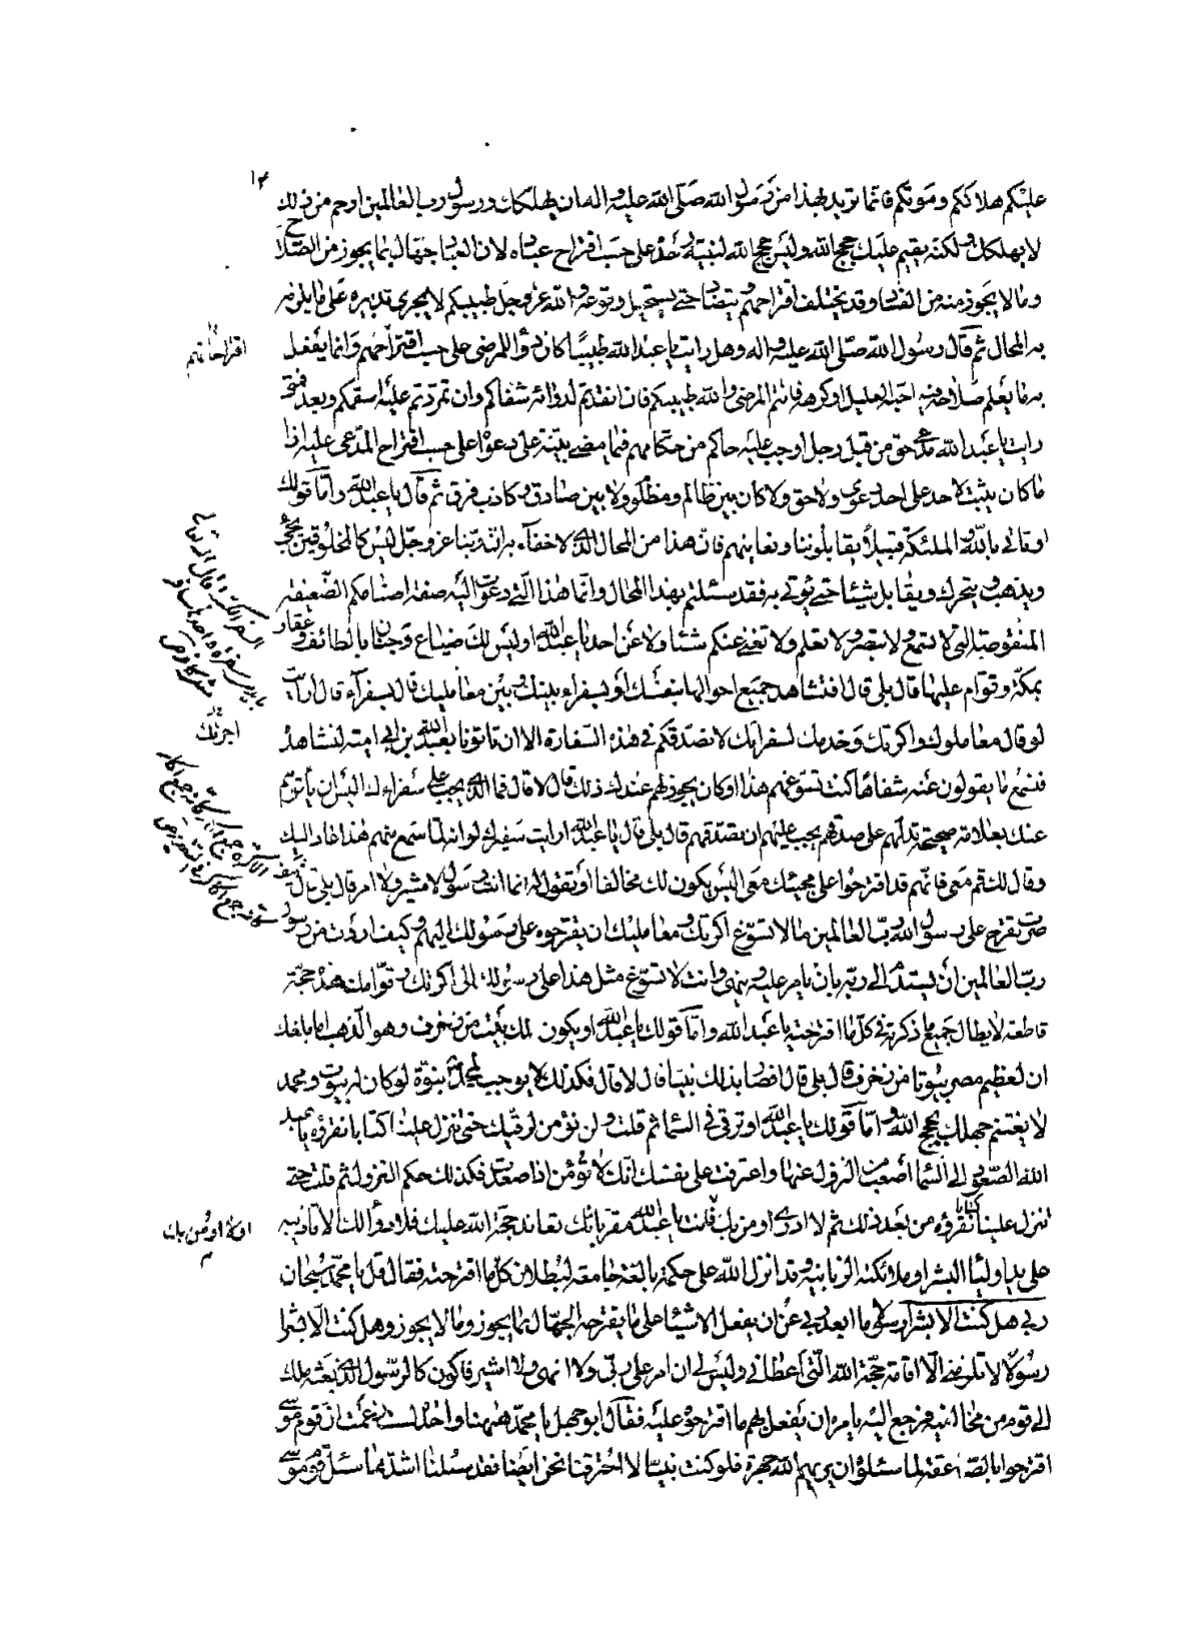 ١٤
عليكم هلاككم وموتكم فانما تريد بهذا من رسول الله صلى الله عليه واله ان يهلكك ورسول رب العالمين ارحم من ذلك
لا يهلكك ولكنه يقيم عليك حجج الله وليس حجج الله لنبيه وحده على حسب اقتراح عباده لان العباد جهال بما يجوز من الصلاح
وما لا يجوز منه من الفساد وقد يختلف اقتراحهم ويتضاد حتى يستحيل وقوعه والله عز وجل طبيبكم لا يجرى تدبيره على ما يلزم
به المحال ثم قال رسول الله صلى الله عليه واله وهل رايت يا عبد الله طبيبا كان دواؤ للمرضى على حسب اقتراحهم وانما يفعل
به ما يعلم صلاحه فيه احبه العليل او كرهه فانتم المرضى والله طبيبكم فان انقدتم لدوائه شفاكم وان تمردتم عليه اسقمكم وبعد فمتى
رايت يا عبد الله مدعى حق من قبل رجل اوجب عليه حاكم من حكامهم فيما مضى بينة على دعواه على حسب اقتراح المدعى عليه اذا
ما كان يثبت لاحد على احد دعوى ولا حق ولا كان بين ظالم ومظلوم ولا بين صادق وكاذب فرق ثم قال يا عبد الله واما قولك
او تاتى بالله والملئكة قبيلا يقابلوننا ونعاينهم فان هذا من المحال الذى لا خفاء به ان ربنا عز وجل ليس كالمخلوقين يجئ
ويذهب ويتحرك ويقابل شيئا حتى يؤتى به فقد سئلتم بهذا المحال وانما هذا الذى دعوت اليه صفة اصنامكم الضعيفة
المنقوصة التى لا تسمع ولا تبصر ولا تعلم ولا تغنى عنكم شئا ولا عن احد يا عبد الله اوليس لك ضياع وجنان بالطائف وعقار
بمكة وقوام عليها قال بلى قال افتشاهد جميع احوالها بنفسك او بسفراء بينك وبين معامليك قال بسفراء قال ارايت
لو قال معاملوك واكرتك وخدمك لسفرائك لا نصدقكم فى هذه السفارة الا ان تاتونا بعبد الله بن ابى امية لنشاهده
فنسمع ما يقولون عنه شفاها كنت تسوغهم هذا او كان يجوز لهم عندك ذلك قال لا قال فما الذى يجب على سفراءك اليس ان ياتوهم
عنك بعلامة صحيحة تدلهم على صدقهم يجب عليهم ان يصدقوهم قال بلى قال يا عبد الله ارايت سفيرك لو انه لما سمع منهم هذا عاد اليك
وقال لك قم معى فانهم قد اقترحوا على مجيئك معى اليس يكون لك مخالفا او تقول له انما انت رسول لا مشير ولا امر قال بلى قال
صرت تقترح على رسول الله رب العالمين ما لا تسوغ اكرتك ومعامليك ان يقترحوه على رسولك اليهم وكيف اردت من رسول
رب العالمين ان يستذم الى ربه بان يامر عليه وينهى وانت لا تسوغ مثل هذا على رسولك الى اكرتك وقوامك هذه حجة
قاطعة لابطال جميع ما ذكرته فى كل ما اقترحته يا عبد الله واما قولك يا عبد الله او يكون لك بيت من زخرف وهو الذهب اما بلغك
ان لعظيم مصر بيوتا من زخرف قال بلى قال افصار بذلك نبيا قال لا قال فكذلك لا يوجب لمحمد نبوة لو كان له بيوت ومحمد
لا يغتنم جهلك بحجج الله واما قولك يا عبد الله او ترقى فى السماء ثم قلت ولن نؤمن لرقيك حتى تنزل علينا كتابا نقرؤه يا عبد
الله الصعود الى السماء اصعب من النزول عنها واعترفت على نفسك انك لا تؤمن اذا صعدت فكذلك حكم النزول ثم قلت حتى
تنزل علينا كتابا نقرؤه من بعد ذلك ثم لا ادرى اومن بك فانت يا عبد الله مقر بانك تعاند حجة الله عليك فلا دواء لك الا تاديبه
على يد اوليائه البشر او ملائكته الزبانية وقد انزل الله على حكمة بالغة جامعة لبطلان كل ما اقترحته فقال قل يا محمد سبحان
ربى هل كنت الا بشرا رسولا ما ابعد ربى عن ان يفعل الاشياء على ما يقترحه الجهال بما يجوز وما لا يجوز وهل كنت الا بشرا
رسولا لا تلزمنى الا اقامة حجة الله التى اعطانى وليس لى ان امر على ربى ولا انهى ولا اشير فاكون كالرسول الذى بعثه ملك
الى قوم من مخالفيه فرجع اليه يامره ان يفعل بهم ما اقترحوه عليه فقال ابو جهل يا محمد ههنا واحدة الست زعمت ان قوم موسى
اقترحوا بالصاعقة لما سئلوا ان يريهم الله جهرة فلو كنت نبيا لاحترقنا نحن ايضا فقد سئلنا اشد مما سئل قوم موسى
اقتراحاتهم
اجرتك
او لا اومن بك